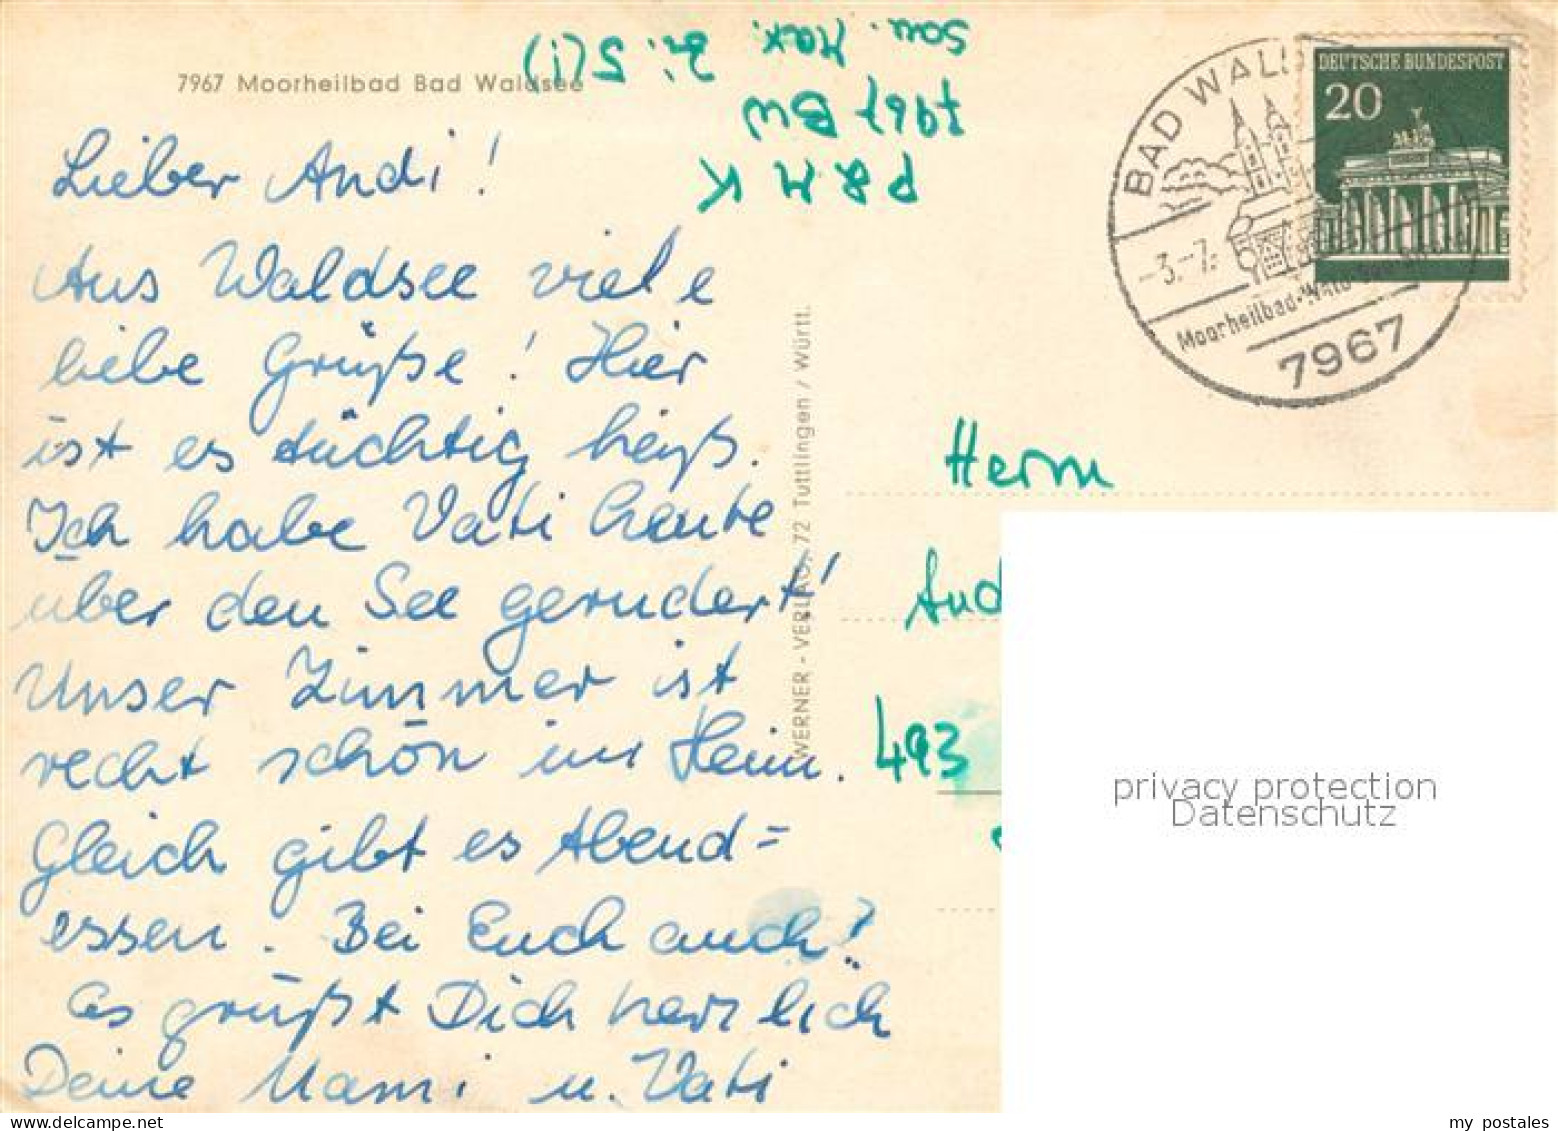 7967 Moorheilbad Bad Waldsee
P & M K
7967 BW
San. Max. Zi. 5(1)
DEUTSCHE BUNDESPOST
20
BAD WALD
-3.-7.
Moorheilbad·
7967
Lieber Andi!
Aus Waldsee viele
liebe Grüße! Hier
ist es tüchtig heiß.
Ich habe Vati heute
über den See gerudert!
Unser Zimmer ist
recht schön im Heim.
Gleich gibt es Abend=
essen. Bei Euch auch?
Es grüßt Dich herzlich
Deine Mami u. Vati
WERNER - VERLAG, 72 Tuttlingen / Württ.
Herrn
And
493
privacy protection
Datenschutz
my postales